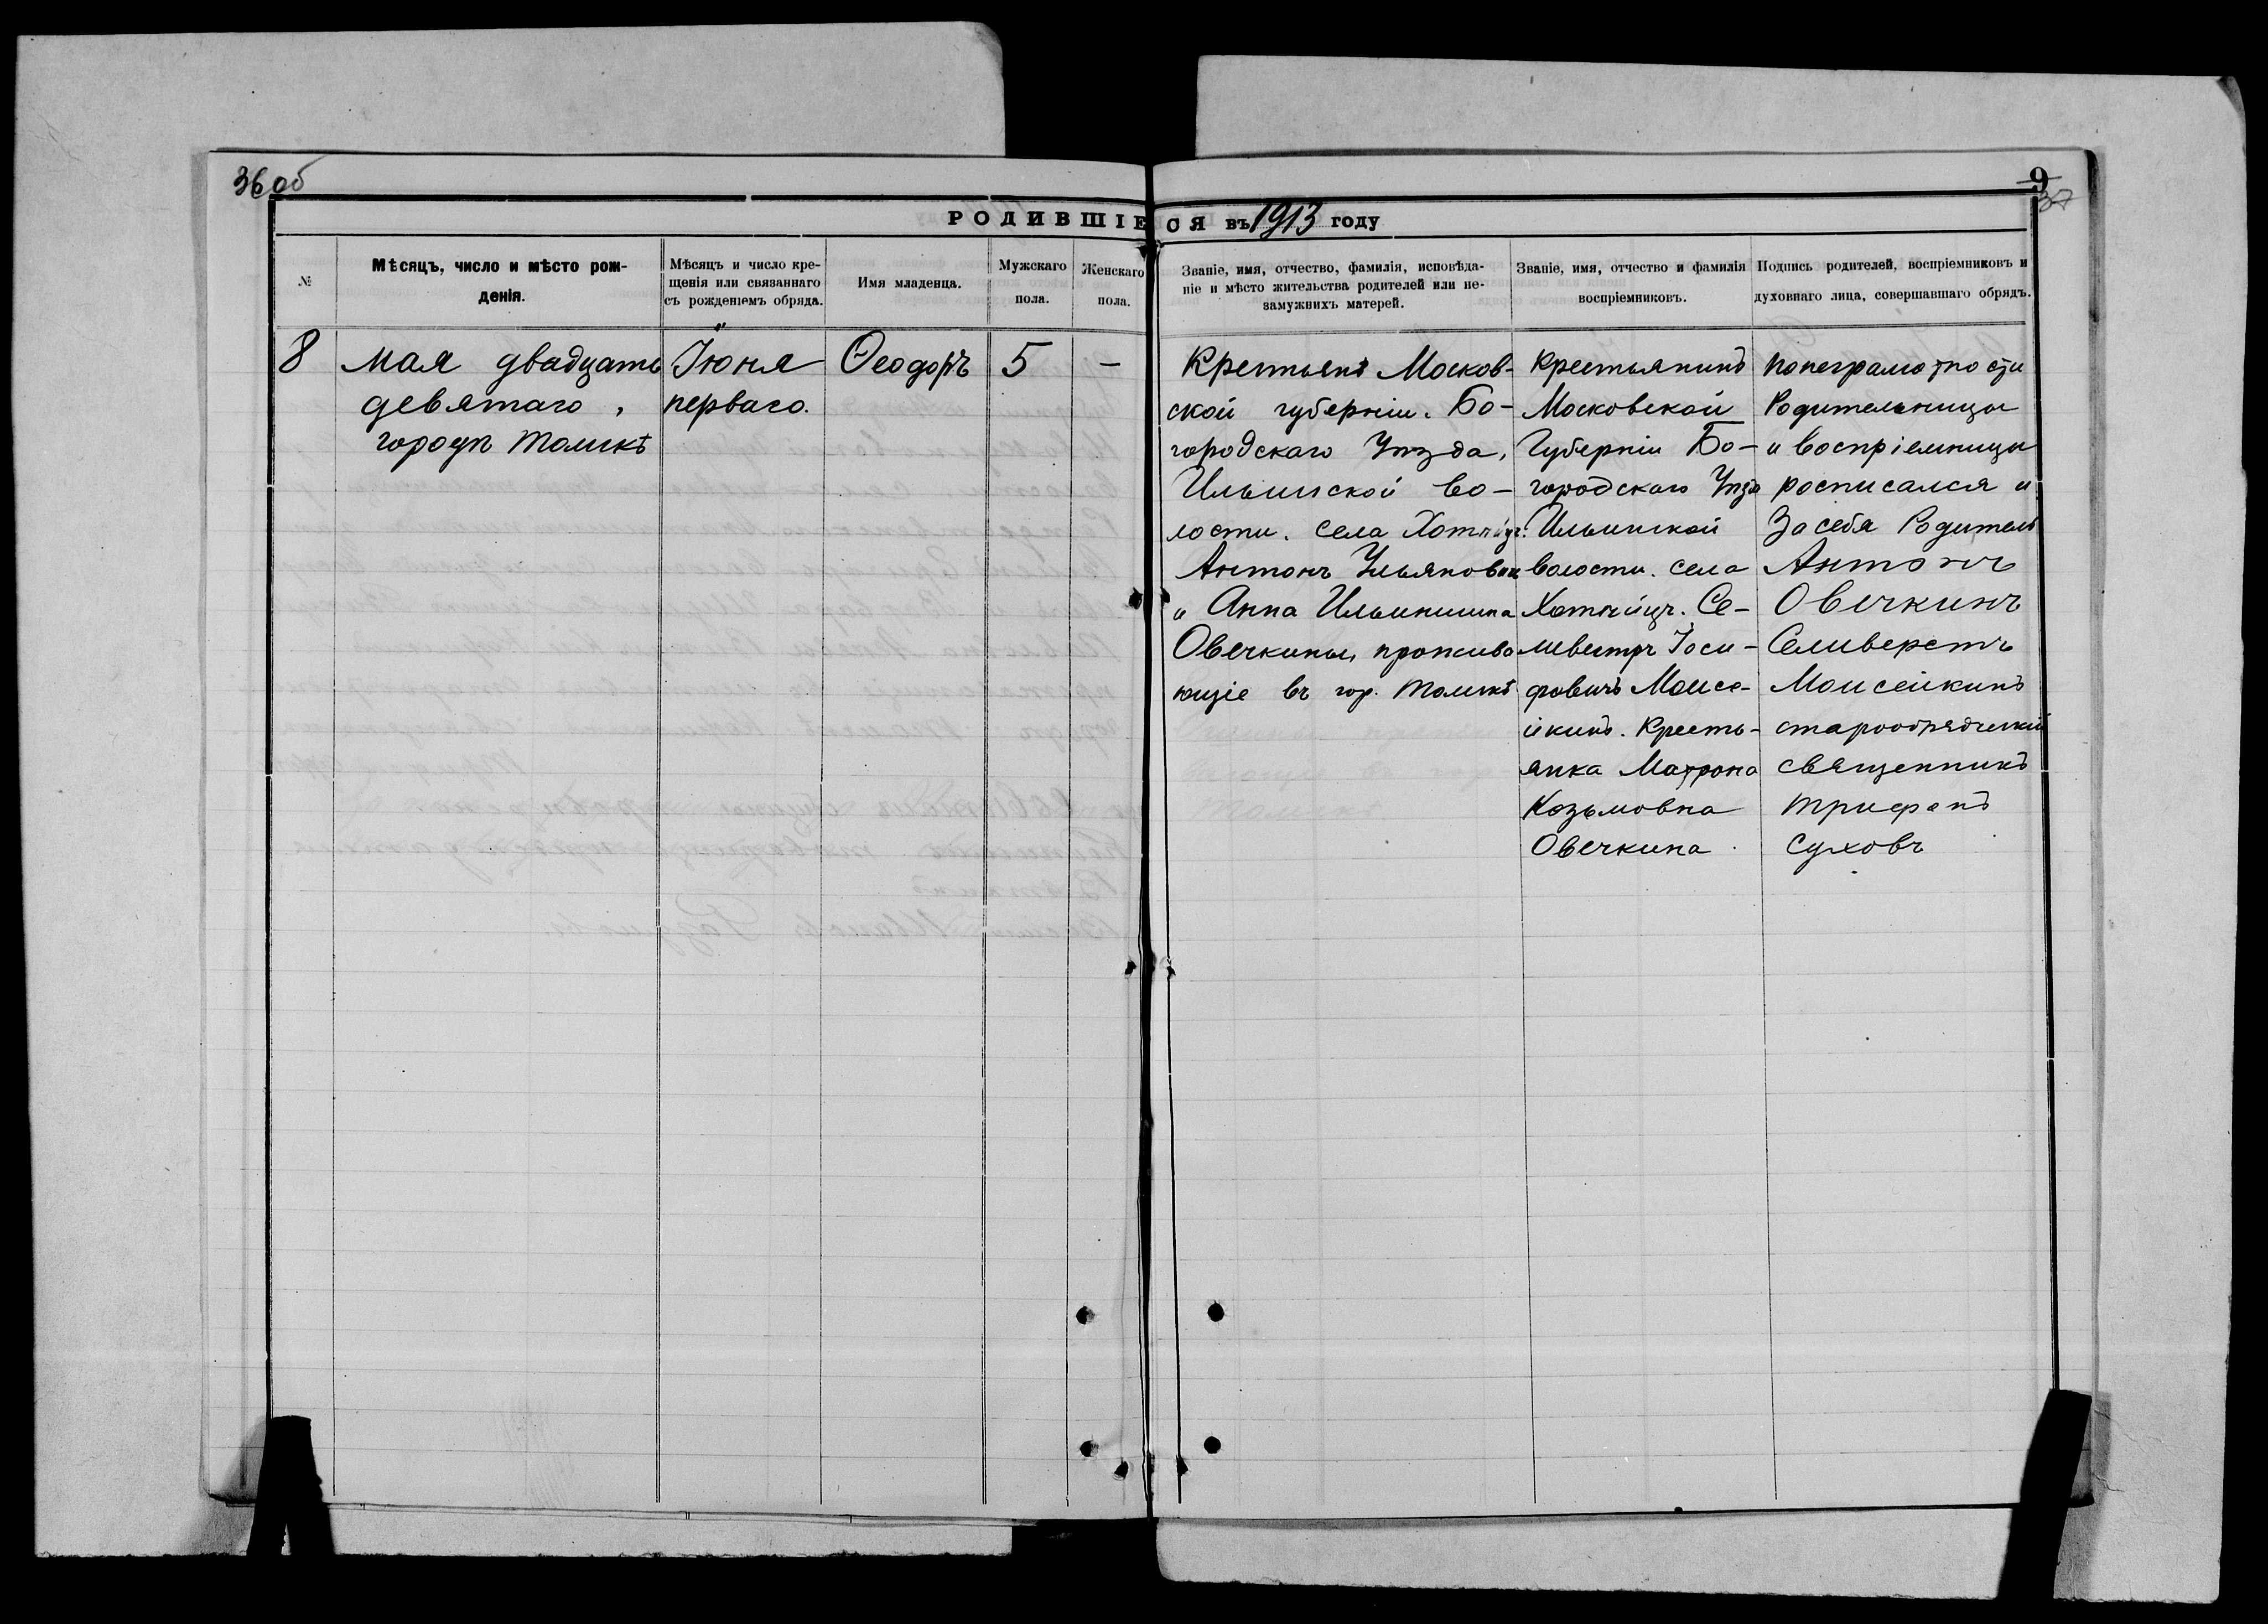 36 об
9
37
РОДИВШІЕСЯ въ 1913 году
№
Мѣсяцъ, число и мѣсто рож-
денія.
Мѣсяцъ и число кре-
щенія или связаннаго
съ рожденіемъ обряда.
Имя младенца.
Мужскаго
пола.
Женскаго
пола.
Званіе, имя, отчество, фамилія, исповѣда-
ніе и мѣсто жительства родителей или не-
замужнихъ матерей.
Званіе, имя, отчество и фамилія
воспріемниковъ.
Подпись родителей, воспріемниковъ и
духовнаго лица, совершавшаго обрядъ.
8
мая двадцать
девятаго,
городѣ Томскѣ
Іюня
перваго.
Ѳеодоръ
5
—
Крестьянѣ Москов-
ской губерніи. Бо-
городскаго Уѣзда,
Ильинской во-
лости. села Хотѣйчъ.
Антонъ Ульяновичъ
и Анна Ильинишна
Овечкины, прожива-
ющіе въ гор. Томскѣ
Крестьянинъ
Московской
Губерніи Бо-
городскаго Уѣзда
Ильинской
волости. села
Хотѣйчъ. Се-
ливестръ Іоси-
фовичъ Моисе-
йкинъ. Кресть-
янка Матрона
Козьмовна
Овечкина
понеграмотности
Родительницы
и воспріемницы
росписался и
За себя Родитель
Антонъ
Овечкинъ
Селиверстъ
Моисейкинъ
старообрядческій
священникъ
Трифонъ
Суховъ